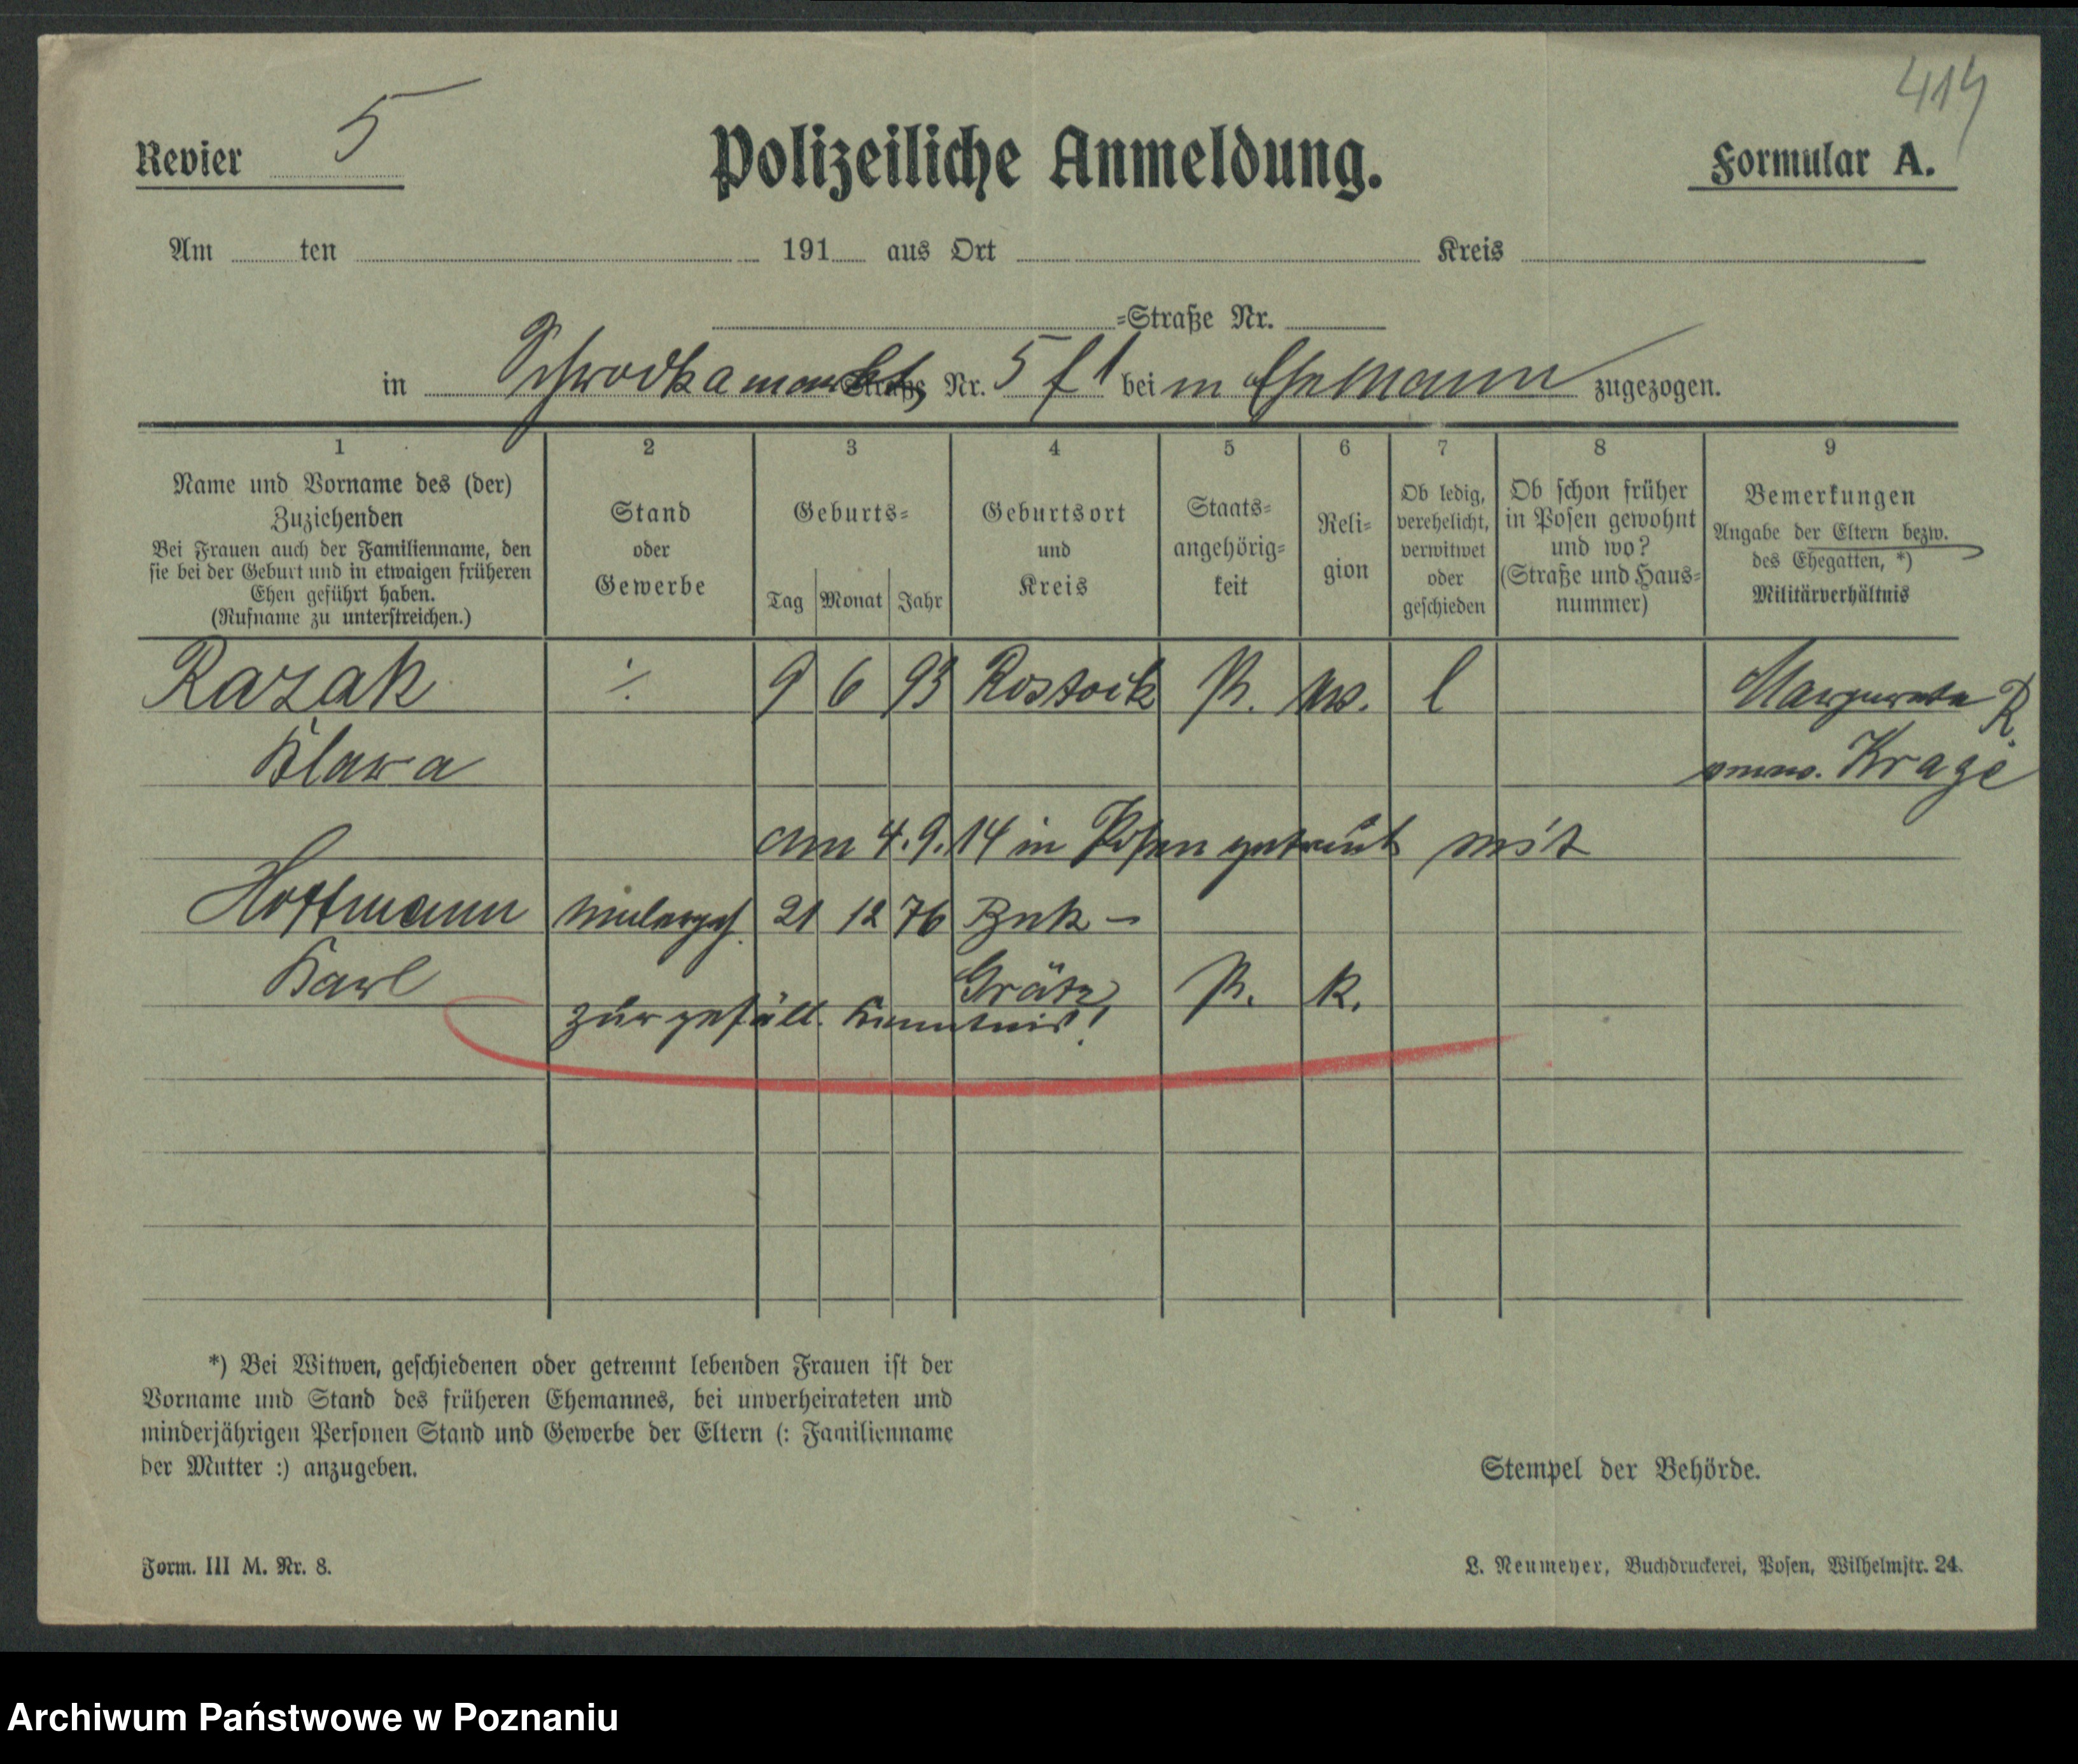 414
Revier 5
Polizeiliche Anmeldung.
Formular A.
Am ten 191 aus Ort Kreis
=Straße Nr.
in Schrodkamarkt, Straße Nr. 5 f 1 bei m Ehemann zugezogen.
1 2 3 4 5 6 7 8 9
Name und Vorname des (der)
Zuziehenden
Bei Frauen auch der Familienname, den
sie bei der Geburt und in etwaigen früheren
Ehen geführt haben.
(Rufname zu unterstreichen.)
Stand
oder
Gewerbe
Geburts=
Tag Monat Jahr
Geburtsort
und
Kreis
Staats=
angehörig=
keit
Reli=
gion
Ob ledig,
verehelicht,
verwitwet
oder
geschieden
Ob schon früher
in Posen gewohnt
und wo?
(Straße und Haus=
nummer)
Bemerkungen
Angabe der Eltern bezw.
des Ehegatten, *)
Militärverhältnis
Razak ./. 9 6 93 Rostock Pr. l Margareta R.
Klara Krage
am 4.9.14 in Posen getraut mit
Hoffmann Malergeh. 21 12 76 Buk –
Karl Grätz Pr. k.
zur gefäll. Kenntnis!
*) Bei Witwen, geschiedenen oder getrennt lebenden Frauen ist der
Vorname und Stand des früheren Ehemannes, bei unverheirateten und
minderjährigen Personen Stand und Gewerbe der Eltern (: Familienname
der Mutter :) anzugeben.
Stempel der Behörde.
Form. III M. Nr. 8.
L. Neumeyer, Buchdruckerei, Posen, Wilhelmstr. 24.
Archiwum Państwowe w Poznaniu